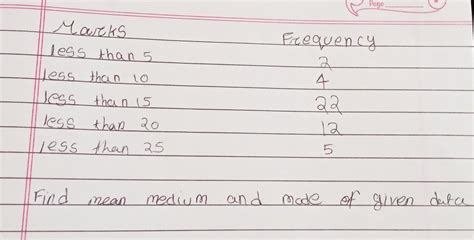 Page
Marks Frequency
less than 5 2
less than 10 4
less than 15 22
less than 20 12
less than 25 5
Find mean medium and mode of given data